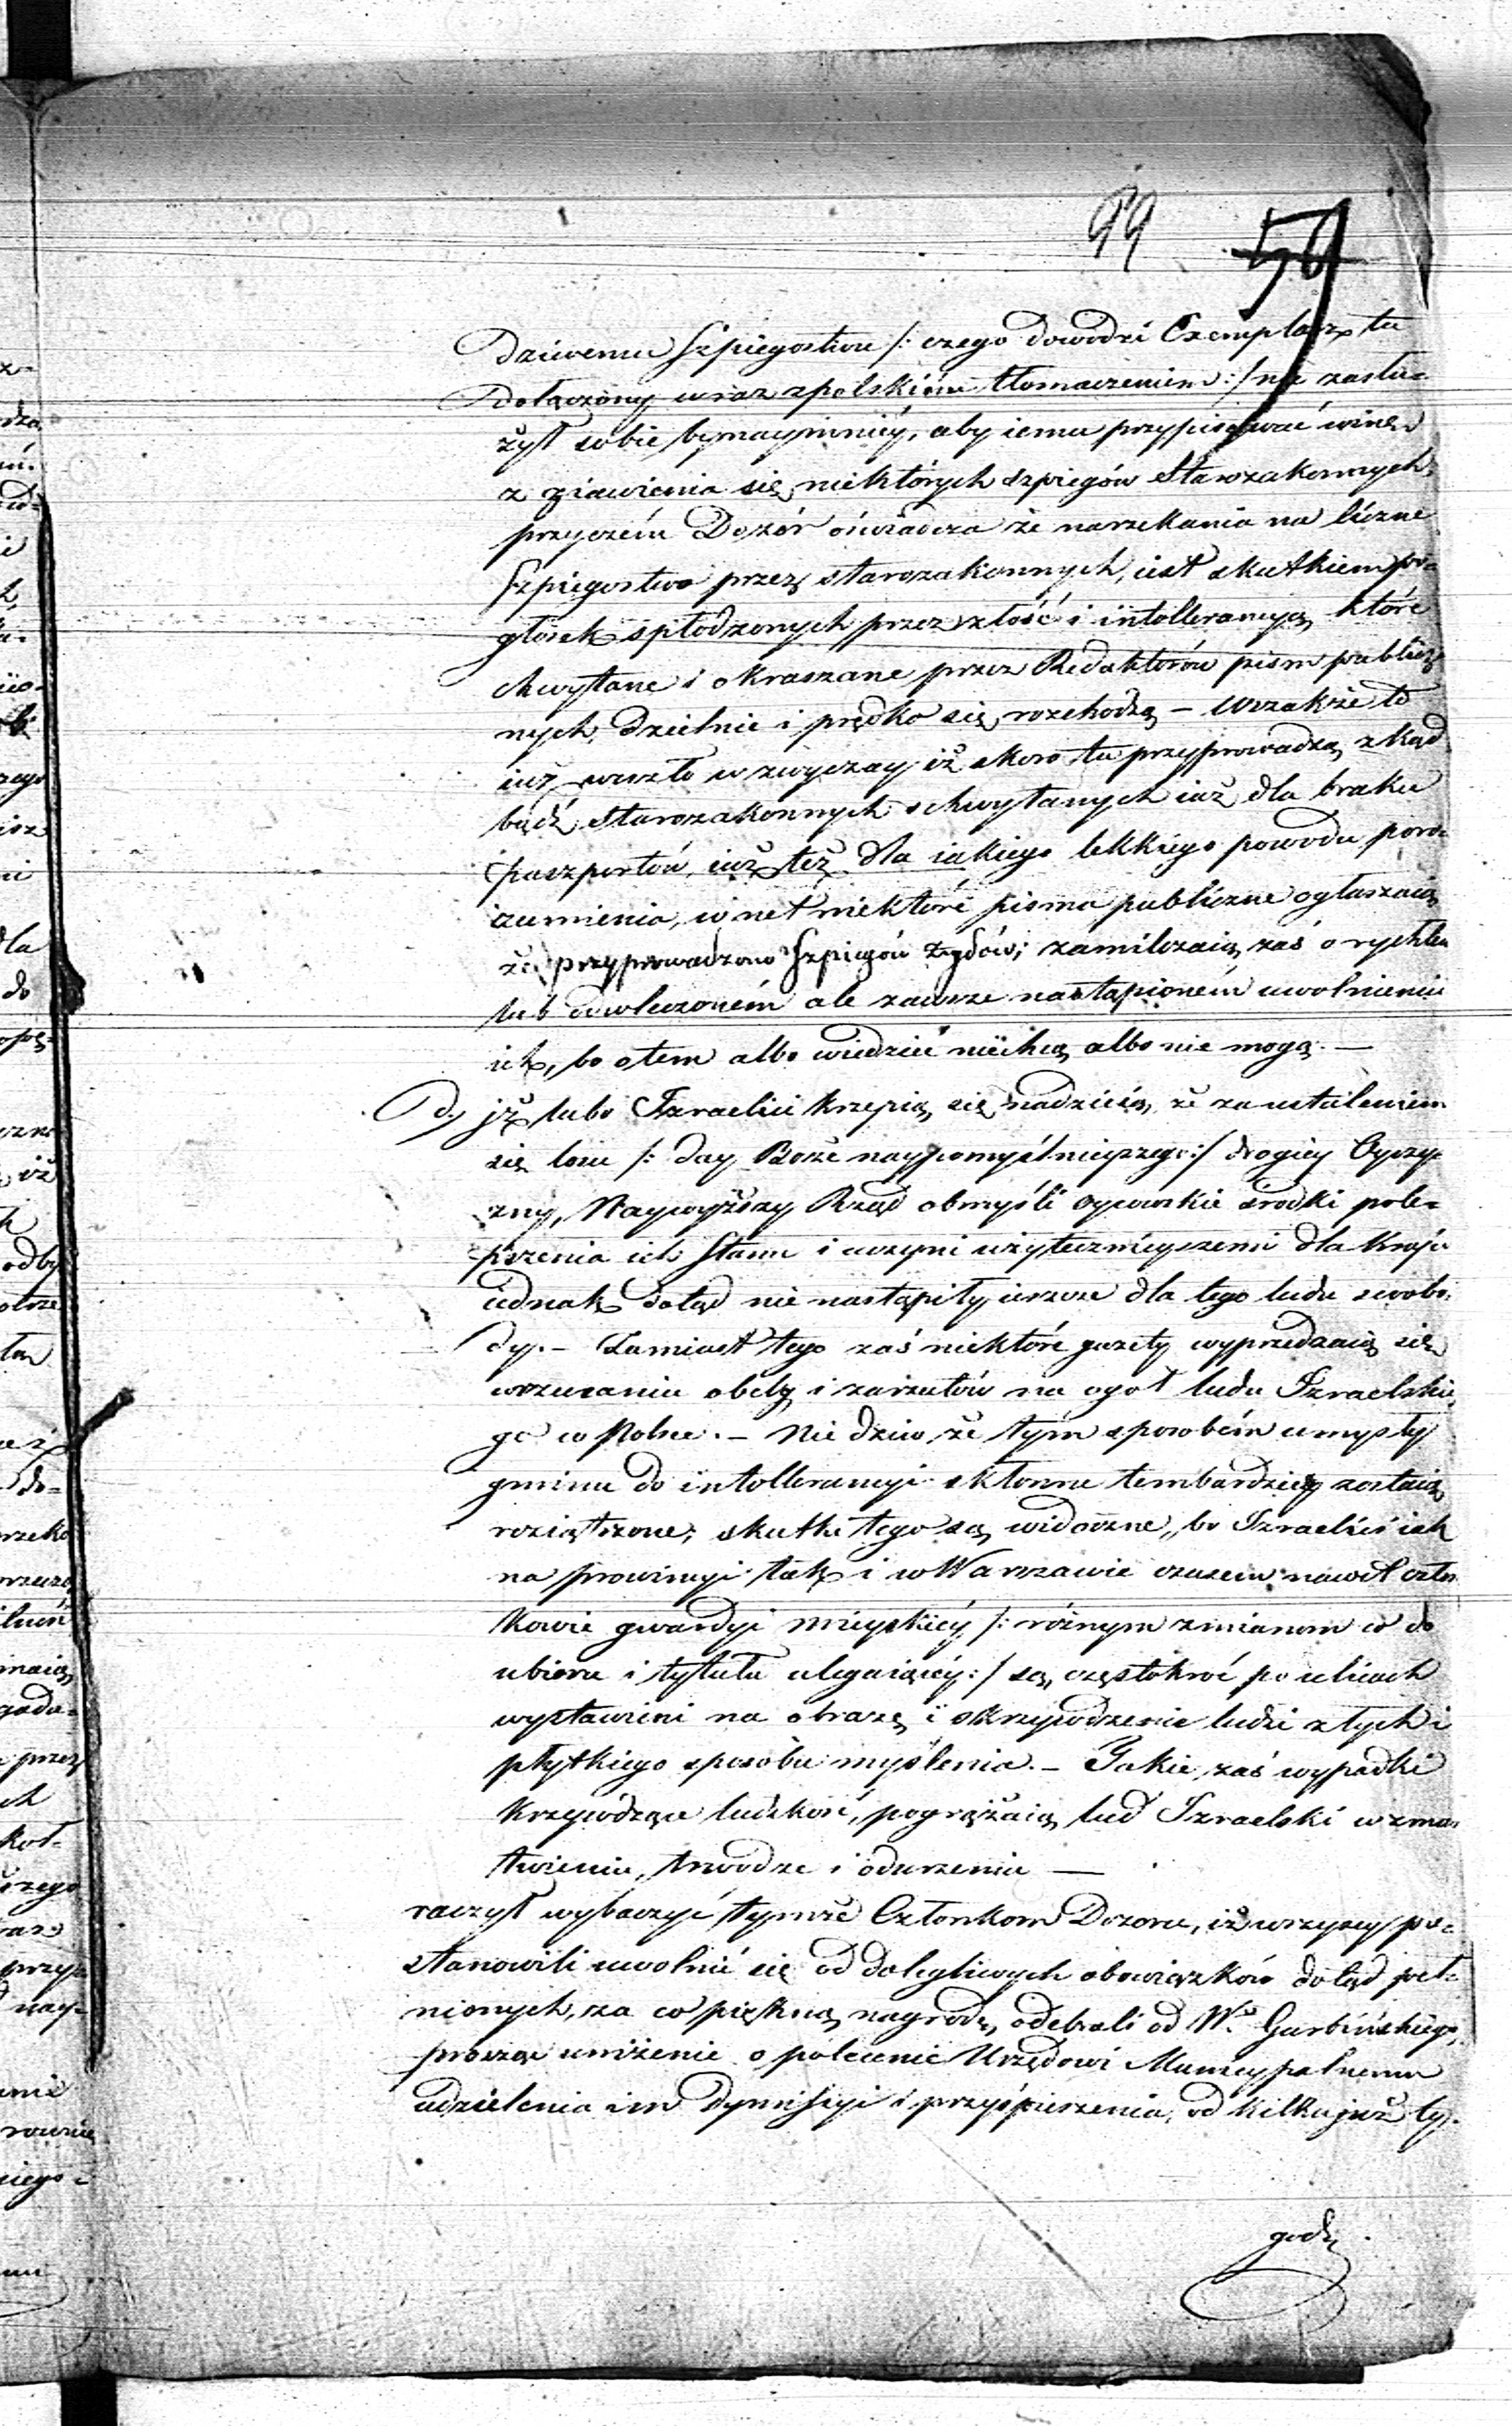 99 59
dziwemu Szpiegostwu /: czego dowodzi Exemplarz tu
dołączony wraz z polskiém tłomaczeniem :/ nie zasłu=
żył sobie bynaymniéy, aby iemu przypisywać winę
z ziawienia się niektórych szpiegów Starozakonnych,
przyczém Dozór oświadcza że narzekania na liczne
Szpiegostwo przez starozakonnych, iest skutkiem po=
głosek spłodzonych przez złość i intolerancyą, które
chwytane i okraszane przez Redaktorów pism publicz=
nych, dzielnie i prędko się rozchodzą – Wszakże to
iuż weszło w zwyczay iż skoro tu przyprowadzą zkąd
bądź Starozakonnych schwytanych iuż dla braku
paszportów, iuż też dla iakiego lekkiego powodu poro=
zumienia, wnet niektóre pisma publiczne ogłaszaią
że przyprowadzono Szpiegów Żydów; zamilczaią zaś o rychłem
lub odwleczoném ale zawsze nastąpioném uwolnieniu
ich, bo o tem albo wiedzieć niechcą albo nie mogą. —
d.) iż lubo Izraelici krzepią się nadzieią, że za ustaleniem
się losu /: day Boże naypomyślnieyszego :/ drogiéy Oyczy=
zny, Naywyższy Rząd obmyśli oycowskie środki pole=
pszenia ich Stanu i uczyni użytecznieyszemi dla Kraju
iednak dotąd nie nastąpiły ieszcze dla tego ludu swobo=
dy. – Zamiast tego zaś niektóre gazety wyprzedzaią się
wrzucaniu obelg i zarzutów na ogół ludu Izraelskie
go w Polsce. – Nie dziw, że tym sposobém umysły
gminu do intollerancyi skłonne tembardziey zostaią
roziątrzone; skutki tego są widoczne, bo Izraelici iak
na prowincyi tak i w Warszawie czasem nawet człon
kowie gwardyi mieyskiéy /: różnym zmianom co do
ubioru i tytułu ulegaiącéy :/ są częstokroć po ulicach
wystawieni na obrazę i skrzywdzenie ludzi złych i
płytkiego sposobu myślenia. – Takie zaś wypadki
krzywdzące ludzkość, pogrążaią lud Izraelski w zmar
twieniu, trwodze i odurzeniu —
raczył wybaczyć tymże Członkom Dozoru, iż wszyscy po=
stanowili uwolnić się od dolegliwych obowiązków dotąd peł=
nionych, za co piękną nagrodę odebrali od Wo Garbińskiego,
prosząc uniżenie o polecenie Urzędowi Municypalnemu
udzielenia im Dymissyi i przyśpieszenia, od kilku już ty=
godn